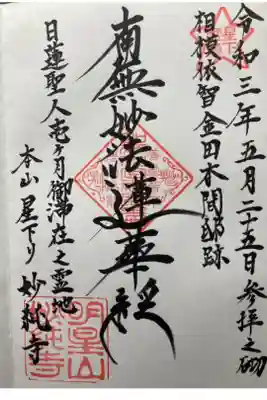 令和三年五月二十五日参拝之砌
相模依智金田本間邸跡
南無妙法蓮華経
日蓮聖人壱ヶ月御滞在之霊地
本山 星下り 妙純寺
明星山
妙純寺
星下り